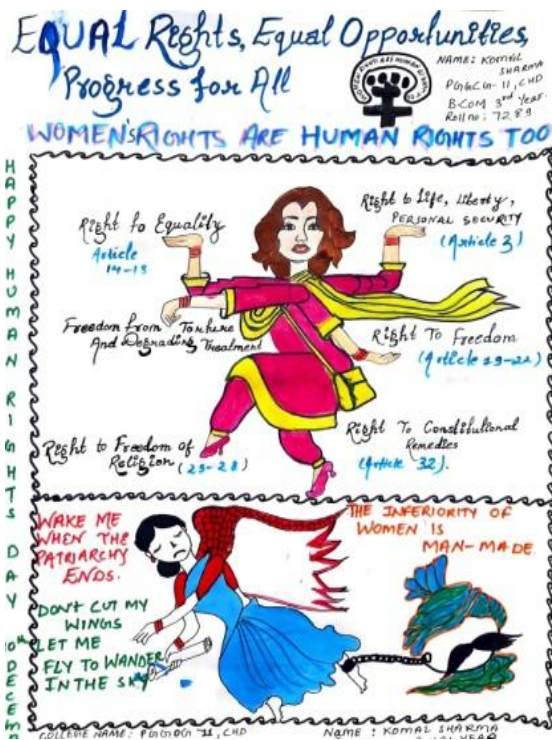 EQUAL Rights, Equal Opportunities,
Progress for All
NAME: KOMAL
SHARMA
PGGCG-11, CHD
B.COM 3rd Year.
Roll no: 7289
WOMEN'S RIGHTS ARE HUMAN RIGHTS TOO
HAPPY HUMAN RIGHTS DAY 10th DECEMB
Right to Equality
Article
14-18
Right to Life, Liberty,
PERSONAL SECURITY
(Article 3)
Freedom from Torture
And Degrading Treatment
Right To Freedom
(Article 19-22)
Right to Freedom of
Religion (25-28)
Right To Constitutional
Remedies
(Article-32).
WAKE ME
WHEN THE
PATRIARCHY
ENDS.
THE INFERIORITY OF
WOMEN IS
MAN-MADE
DON'T CUT MY
WINGS
LET ME
FLY TO WANDER
IN THE SKY
COLLEGE NAME: PGGCG-11, CHD
NAME: KOMAL SHARMA
YEAR